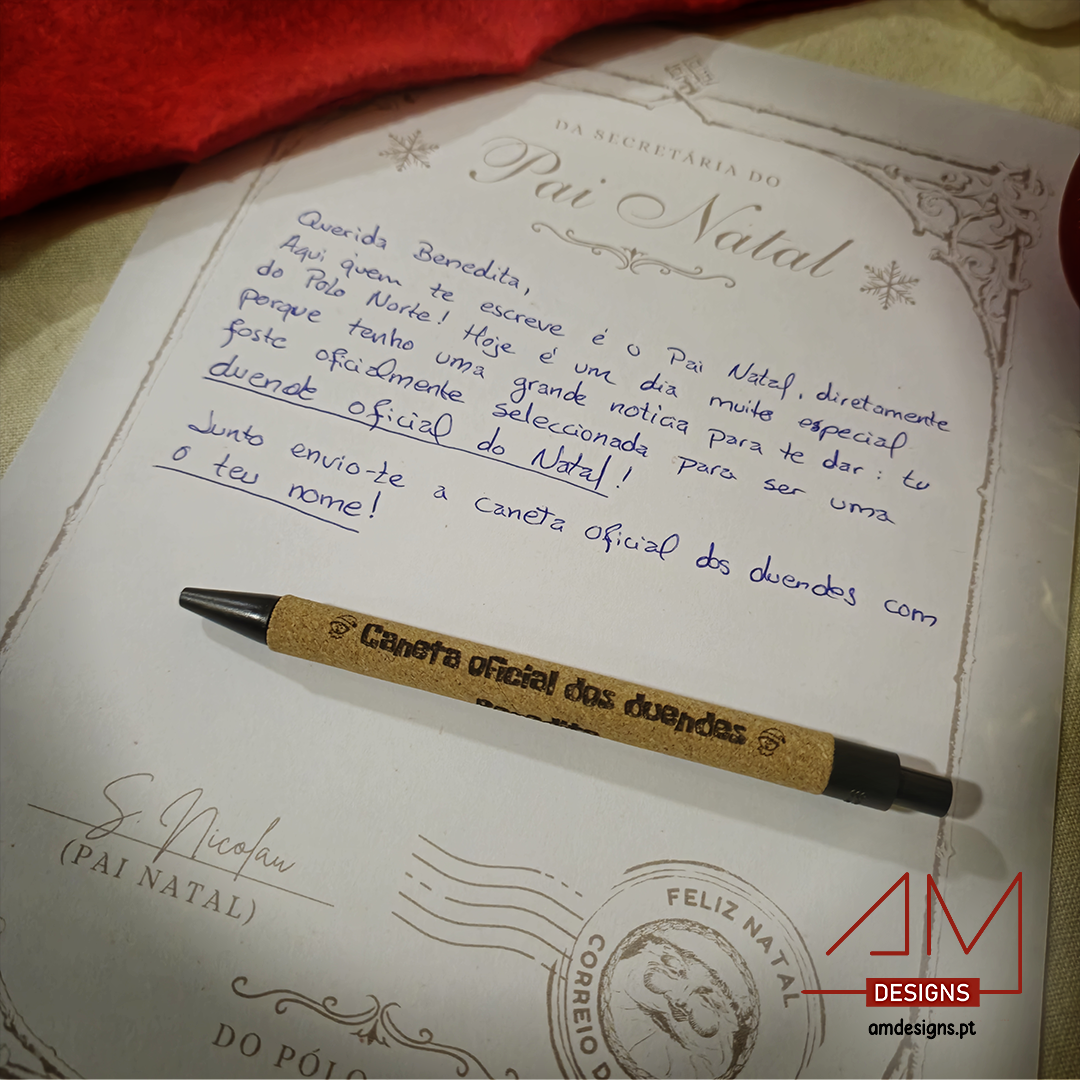 DA SECRETÁRIA DO
Pai Natal
Querida Benedita,
Aqui quem te escreve é o Pai Natal, diretamente
do Polo Norte! Hoje é um dia muito especial
porque tenho uma grande noticia para te dar: tu
foste oficialmente seleccionada para ser uma
duende oficial do Natal!
Junto envio-te a caneta oficial dos duendes com
o teu nome!
Caneta oficial dos duendes
S. Nicolau
(PAI NATAL)
FELIZ NATAL
CORREIO D
DO PÓLO
AM
DESIGNS
amdesigns.pt